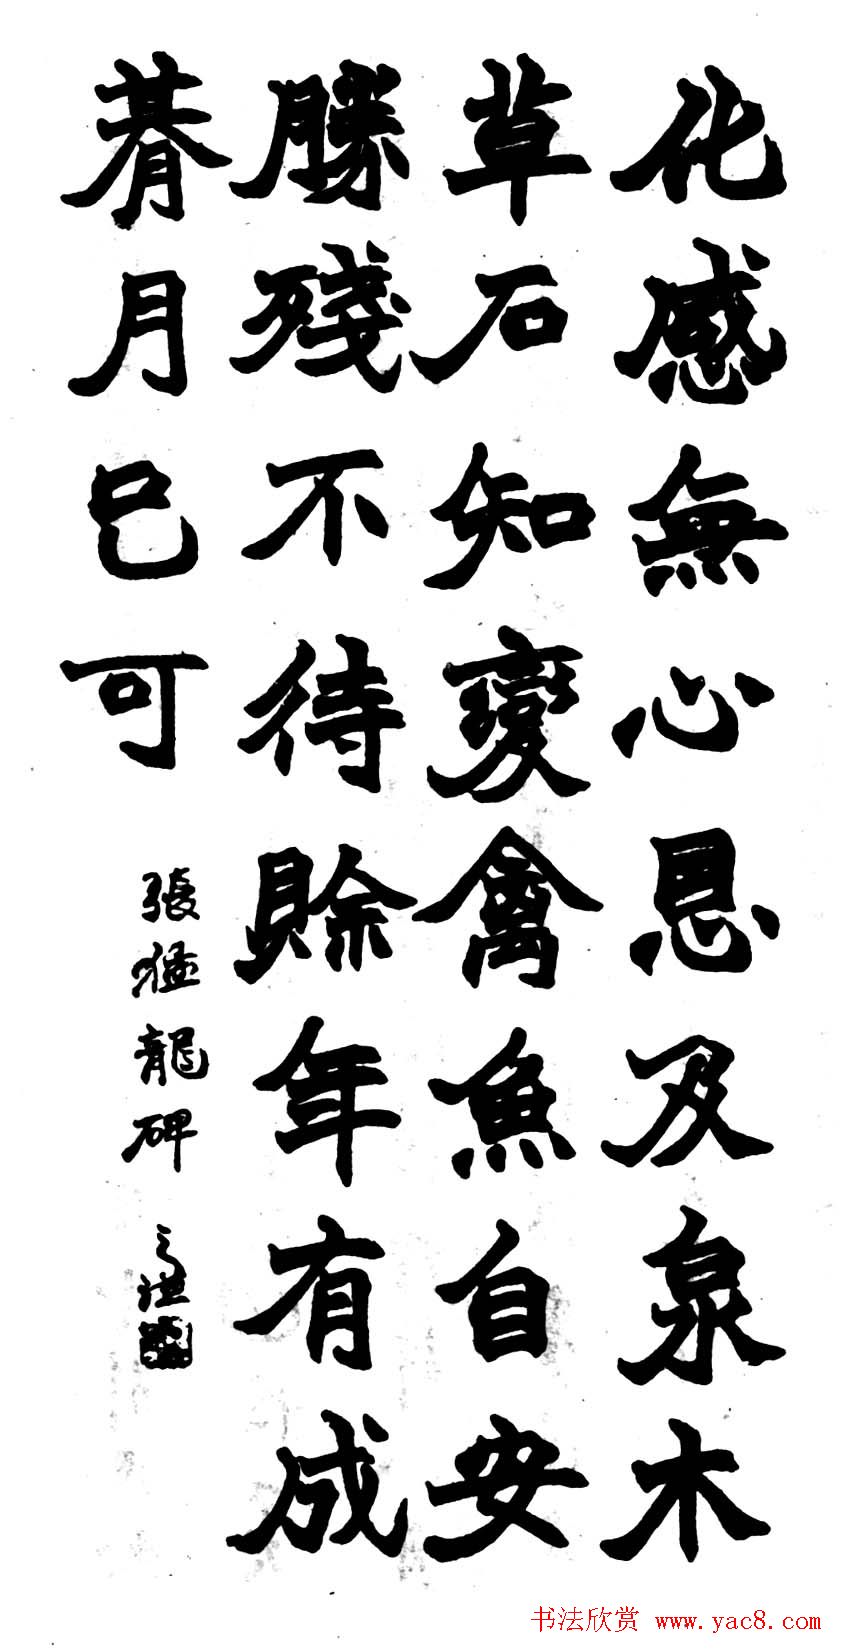 化感無心恩及泉木
草石知變禽魚自安
勝殘不待賒年有成
朞月已可
張猛龍碑
书法欣赏 www.yac8.com